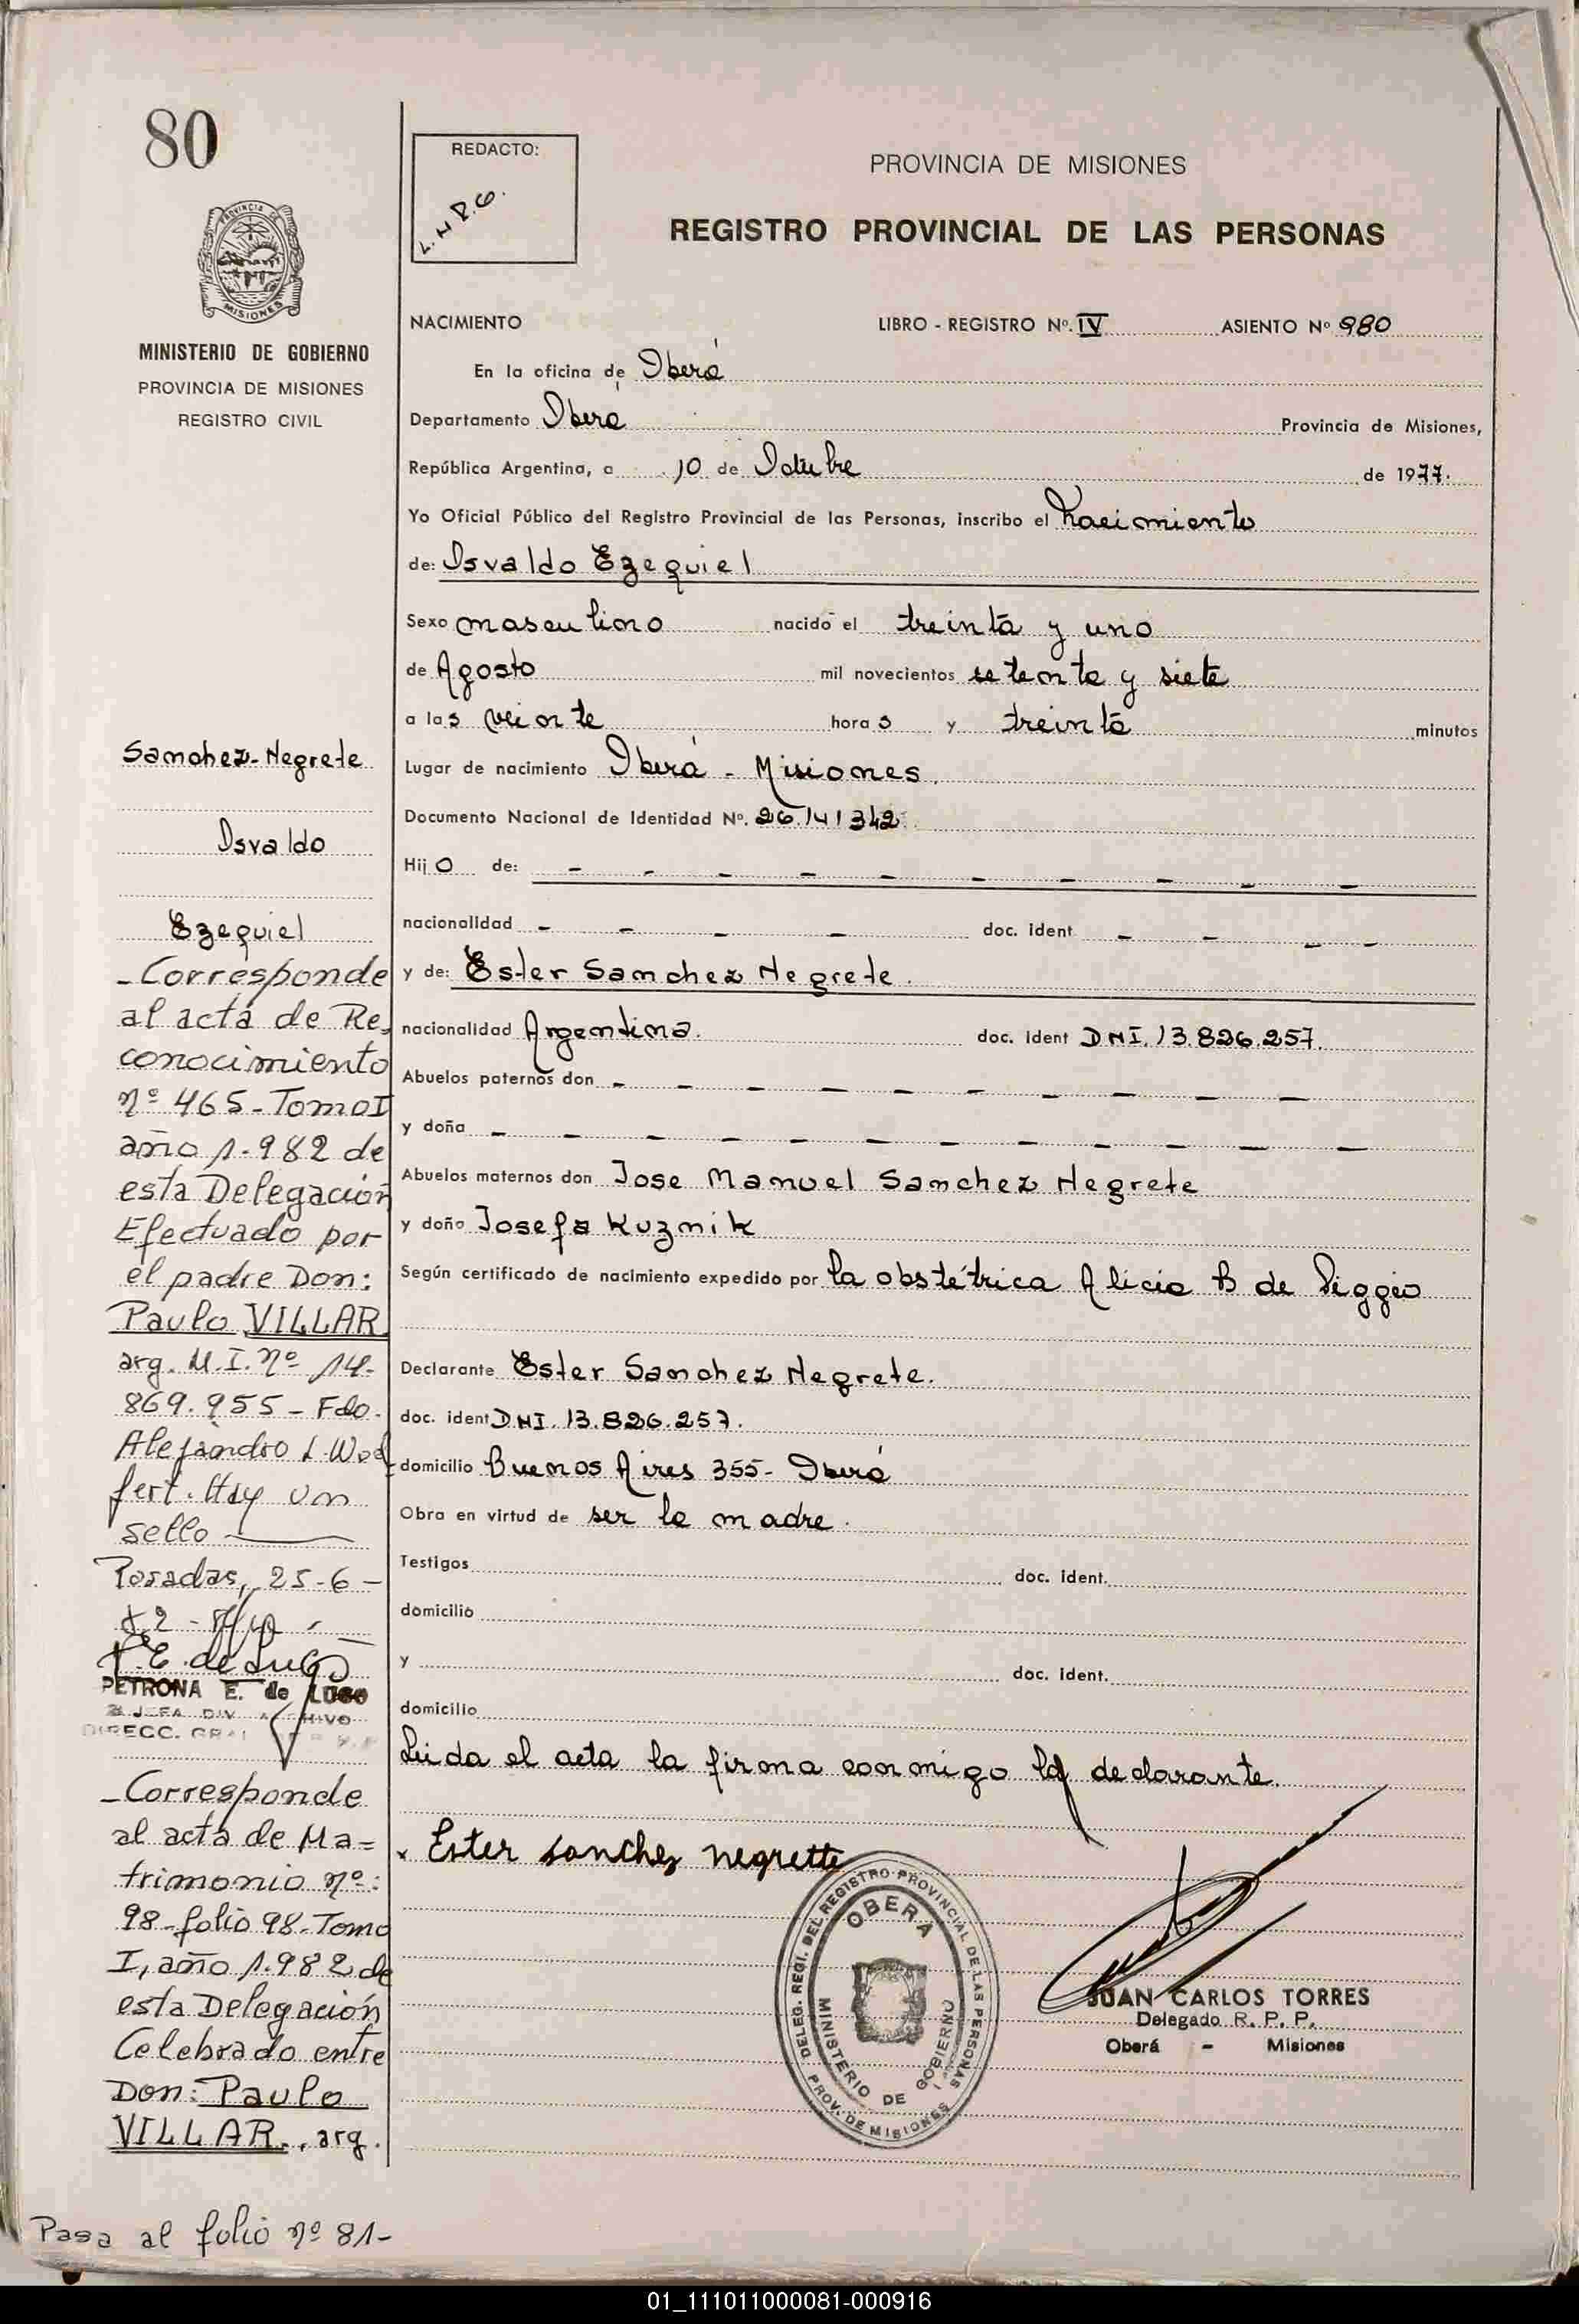 80
REDACTO:
L.H.R.G.
PROVINCIA DE MISIONES
REGISTRO PROVINCIAL DE LAS PERSONAS
PROVINCIA DE
MISIONES
MINISTERIO DE GOBIERNO
PROVINCIA DE MISIONES
REGISTRO CIVIL
NACIMIENTO LIBRO - REGISTRO Nº. IV ASIENTO Nº 980
En la oficina de Oberá
Departamento Oberá Provincia de Misiones,
República Argentina, a 10 de Octubre de 1977.
Yo Oficial Público del Registro Provincial de las Personas, inscribo el nacimiento
de: Osvaldo Ezequiel
Sexo masculino nacido el treinta y uno
de Agosto mil novecientos setenta y siete
a las veinte horas y treinta minutos
Lugar de nacimiento Oberá - Misiones.
Documento Nacional de Identidad Nº. 26.141342.
Hijo de: - - - - - - - - - -
nacionalidad - - - - doc. ident - - - -
y de: Ester Sanchez Negrete.
nacionalidad Argentina. doc. ident DNI. 13.826.257.
Abuelos paternos don - - - - - - - - - -
y doña - - - - - - - - - - - -
Abuelos maternos don Jose Manuel Sanchez Negrete
y doña Josefa Kuznik
Según certificado de nacimiento expedido por la obstétrica Alicia B de Piggio
Declarante Ester Sanchez Negrete.
doc. ident DNI. 13.826.257.
domicilio Buenos Aires 355- Oberá
Obra en virtud de ser la madre.
Testigos doc. ident.
domicilio
y doc. ident.
domicilio
Leida el acta la firma conmigo la declarante.
x Ester sanchez negrette
DELEG. REGI. DEL REGISTRO PROVINCIAL DE LAS PERSONAS
OBERA
MINISTERIO DE GOBIERNO
PROV. DE MISIONES
JUAN CARLOS TORRES
Delegado R. P. P.
Oberá - Misiones
Sanchez-Negrete
Osvaldo
Ezequiel
-Corresponde
al acta de Re-
conocimiento
nº 465-Tomo I
año 1.982 de
esta Delegación
Efectuado por
el padre Don:
Paulo VILLAR
arg. M.I. nº 14.
869.955 - Fdo.
Alejandro L.
fert. Hay un
sello
Posadas, 25-6-
82 -
P.E. de Lugo
PETRONA E. de LUGO
JEFA DIV. ARCHIVO
DIRECC. GRAL
-Corresponde
al acta de Ma=
trimonio nº:
98-folio 98-Tomo
I, año 1.982 de
esta Delegación
Celebrado entre
Don: Paulo
VILLAR., arg.
Pasa al folio nº 81-
01_111011000081-000916